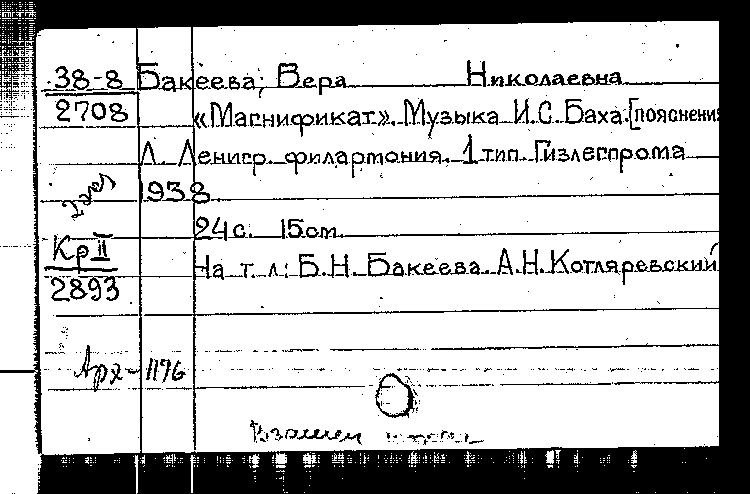 38-8 Бакеева, Вера Николаевна
2708 «Магнификат». Музыка И.С. Баха. [пояснени
Л. Ленигр. филармония. 1 тип. Гизлегпрома
1938
2 экз
24 с. 15 см.
Кр II
2893
На т. л.: Б.Н. Бакеева. А.Н. Котляревский
Арх-1176
Взамен